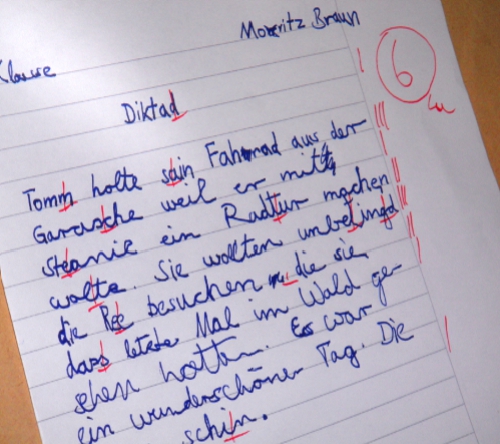 Moritz Braun
Klasse
6
Diktad
Tomm holte sain Fahrrad aus der
Garasche weil er mitt
Steanie ein Radtur machen
wolte. Sie wollten unbetingd
die Ree besuchen die sie
dass letzte Mal im Wald ge-
sehen hatten. Es war
ein wunderschöner Tag. Die
schin.